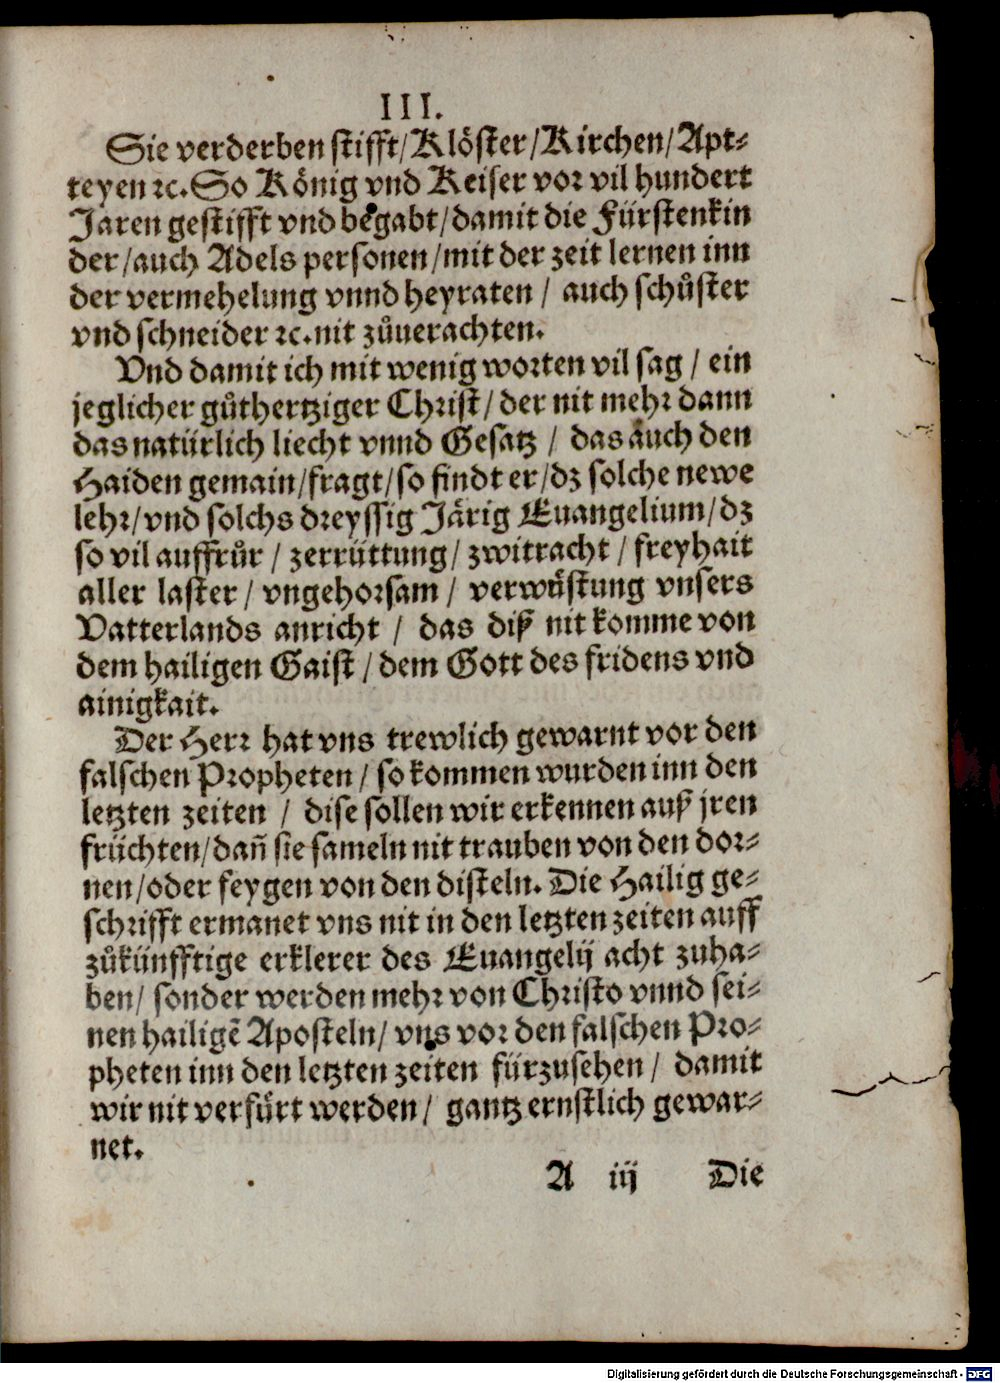 III.
Sie verderben stifft/Klöster/Kirchen/Apt⸗
teyen ꝛc. So König vnd Keiser vor vil hundert
Jaren gestifft vnd begabt/damit die Fürstenkin
der/auch Adels personen/mit der zeit lernen inn
der vermehelung vnnd heyraten / auch schůster
vnd schneider ꝛc. nit zůuerachten.
Vnd damit ich mit wenig worten vil sag / ein
jeglicher gůthertziger Christ/der nit mehr dann
das natürlich liecht vnnd Gesatz / das auch den
Haiden gemain/fragt/so findt er/dz solche newe
lehr/vnd solchs dreyssig Järig Euangelium/dz
so vil auffrůr / zerrüttung/ zwitracht / freyhait
aller laster / vngehorsam / verwůstung vnsers
Vatterlands anricht / das diß nit komme von
dem hailigen Gaist / dem Gott des fridens vnd
ainigkait.
Der Herr hat vns trewlich gewarnt vor den
falschen Propheten / so kommen wurden inn den
letzten zeiten / dise sollen wir erkennen auß jren
früchten/dañ sie sameln nit trauben von den dor⸗
nen/oder feygen von den disteln. Die Hailig ge⸗
schrifft ermanet vns nit in den letzten zeiten auff
zůkünfftige erklerer des Euangelij acht zuha⸗
ben/ sonder werden mehr von Christo vnnd sei⸗
nen hailigē Aposteln/ vns vor den falschen Pro⸗
pheten inn den letzten zeiten fürzusehen / damit
wir nit verfürt werden / gantz ernstlich gewar⸗
net.
A iij Die
Digitalisierung gefördert durch die Deutsche Forschungsgemeinschaft - DFG